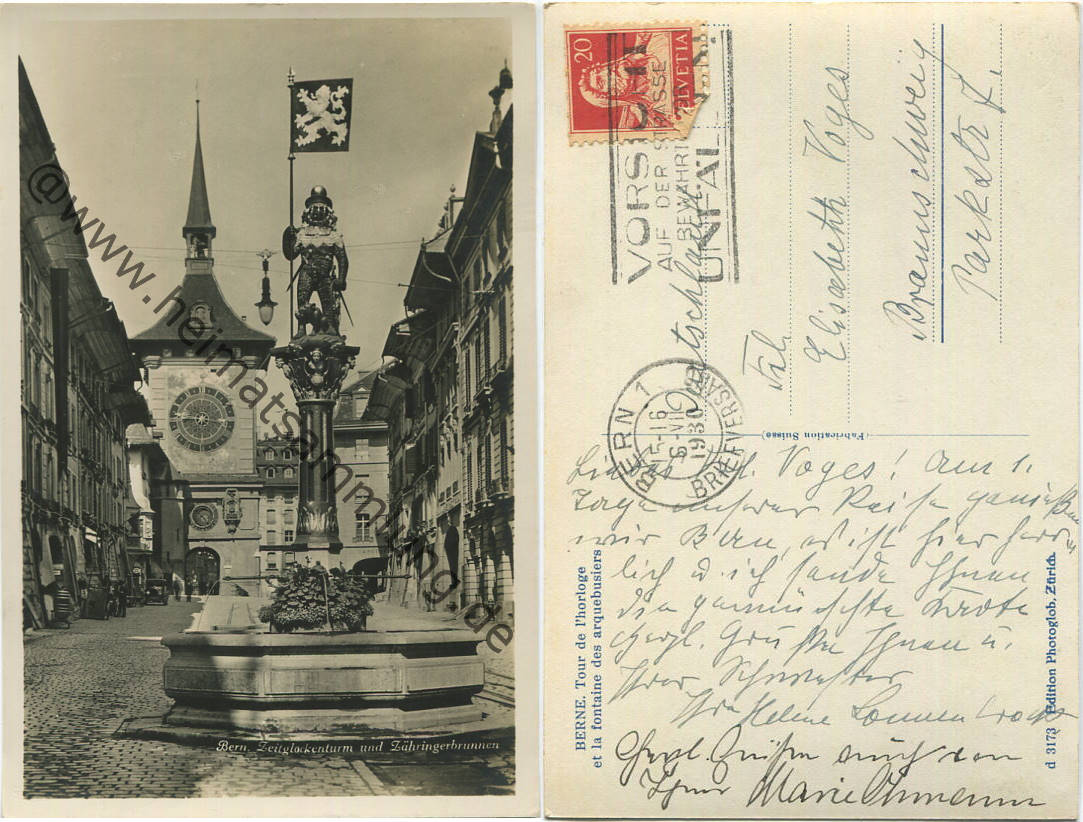 @www.heimatsammlung.de
Bern. Zeitglockenturm und Zähringerbrunnen
20 HELVETIA
VORSICHT
AUF DER STRASSE
BEWAHRT
UNFALL
BERN 1
15-16
6.VII
1930
BRIEFVERSAND
Deutschland
Frl.
Elisabeth Voges
Braunschweig
Parkstr 7.
(Fabrication Suisse)
BERNE. Tour de l'horloge
et la fontaine des arquebusiers
d 3173 Edition Photoglob, Zürich.
Liebes Frl. Voges! Am 1.
Tage unserer Reise genießen
wir Bern, es ist hier herr
lich u. ich sende Ihnen
die gewünschte Karte
Herzl. Grüße Ihnen u.
Ihrer Schwester
Ihre Helene
Herzl. Grüße auch von
Ihrer Marie